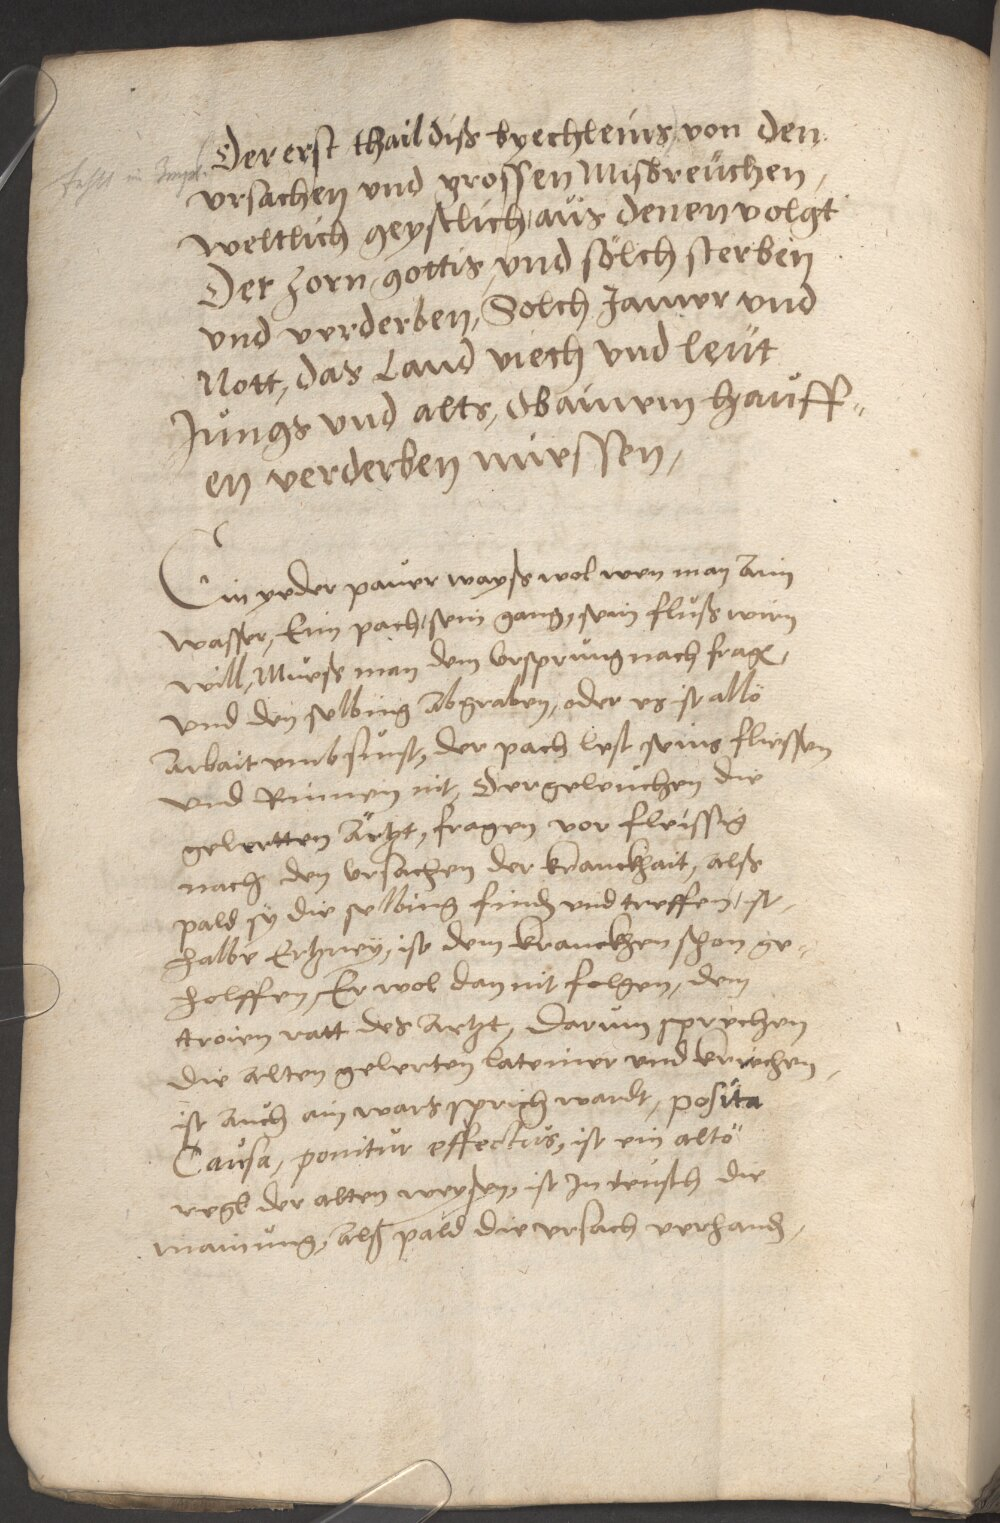 Der erst thail diss byechleins, von den
vrsachen vnd grossen Misbreuchen,
weltlich geystlich, aus denen volgt
Der zorn gottis, vnd sölch sterben
vnd verderben, Solch Jamer vnd
Nott, das Land viech vnd leüt
Jungs vnd alts, mit hauff„
en verderben müessen,
Ein yeder pauer wayss wol wen man Aim
wasser, Eim pach, sein gang, sein fluss wern
will, Muess man dem vrsprung nach frage,
vnd den selbing Abgraben, oder es ist alle
Arbait vmb sunst, der pach lest seins fliessen
vnd Rinnen nit, Dergeleichen die
gelertten Ärtzt, fragen vor fleissig
nach den vrsachen der kranckhait, alss
pald sy die selbing finden vnd treffen, ist
halbe Ertzney, ist dem kranckhen schon ge„
holffen, Er wol dan nit folgen, dem
troien ratt des Artzt, Darum sprechen
die alten gelerten lateiner vnd kriechen,
ist Auch ain wars sprich wardt, posita
Causa, ponitur effectus, ist ein alte
regl der alten weysen, ist Jn teusch die
mainung, Alss pald die vrsach verhanden,
fehlt in